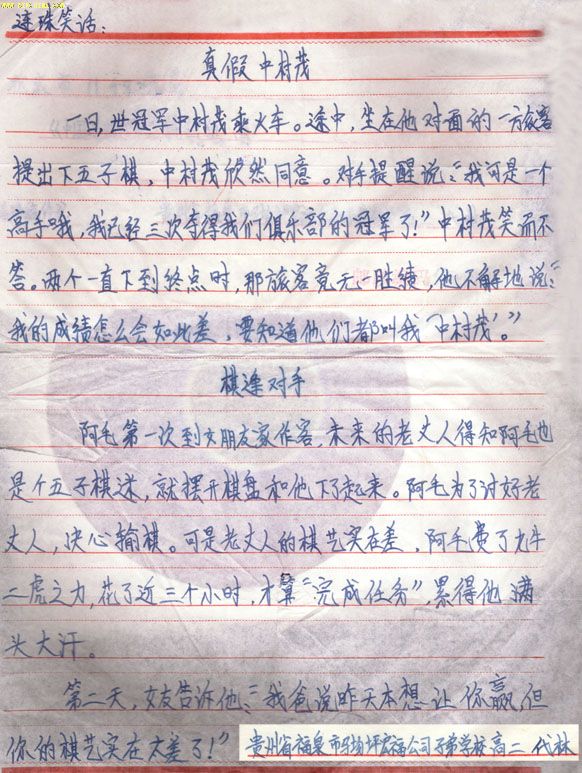 连珠笑话:
真假中村茂
一日,世冠军中村茂乘火车。途中,坐在他对面的一旅客
提出下五子棋,中村茂欣然同意。对手提醒说:“我可是一个
高手哦,我已经三次夺得我们俱乐部的冠军了!”中村茂笑而不
答。两个一直下到终点时,那旅客竟无一胜绩,他不解地说:“
我的成绩怎么会如此差,要知道他们都叫我‘中村茂’。”
棋逢对手
阿毛第一次到女朋友家作客,未来的老丈人得知阿毛也
是个五子棋迷,就摆开棋盘和他下了起来。阿毛为了讨好老
丈人,决心输棋。可是老丈人的棋艺实在差,阿毛费了九牛
二虎之力,花了近三个小时,才算“完成任务”,累得他满
头大汗。
第二天,女友告诉他:“我爸说昨天本想让你赢,但
你的棋艺实在太差了!”
贵州省福泉市马场坪宏福公司子弟学校高二 代林